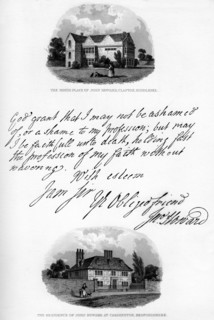 THE BIRTH-PLACE OF JOHN HOWARD, CLAPTON, MIDDLESEX.
God grant that I may not be ashamed
of or a shame to my profession, but may
I be faithfull unto death, holding fast
the profession of my faith without
wavering.
With esteem
I am Sir
Yr Obliged friend
Jno Howard
THE RESIDENCE OF JOHN HOWARD, AT CARDINGTON, BEDFORDSHIRE.